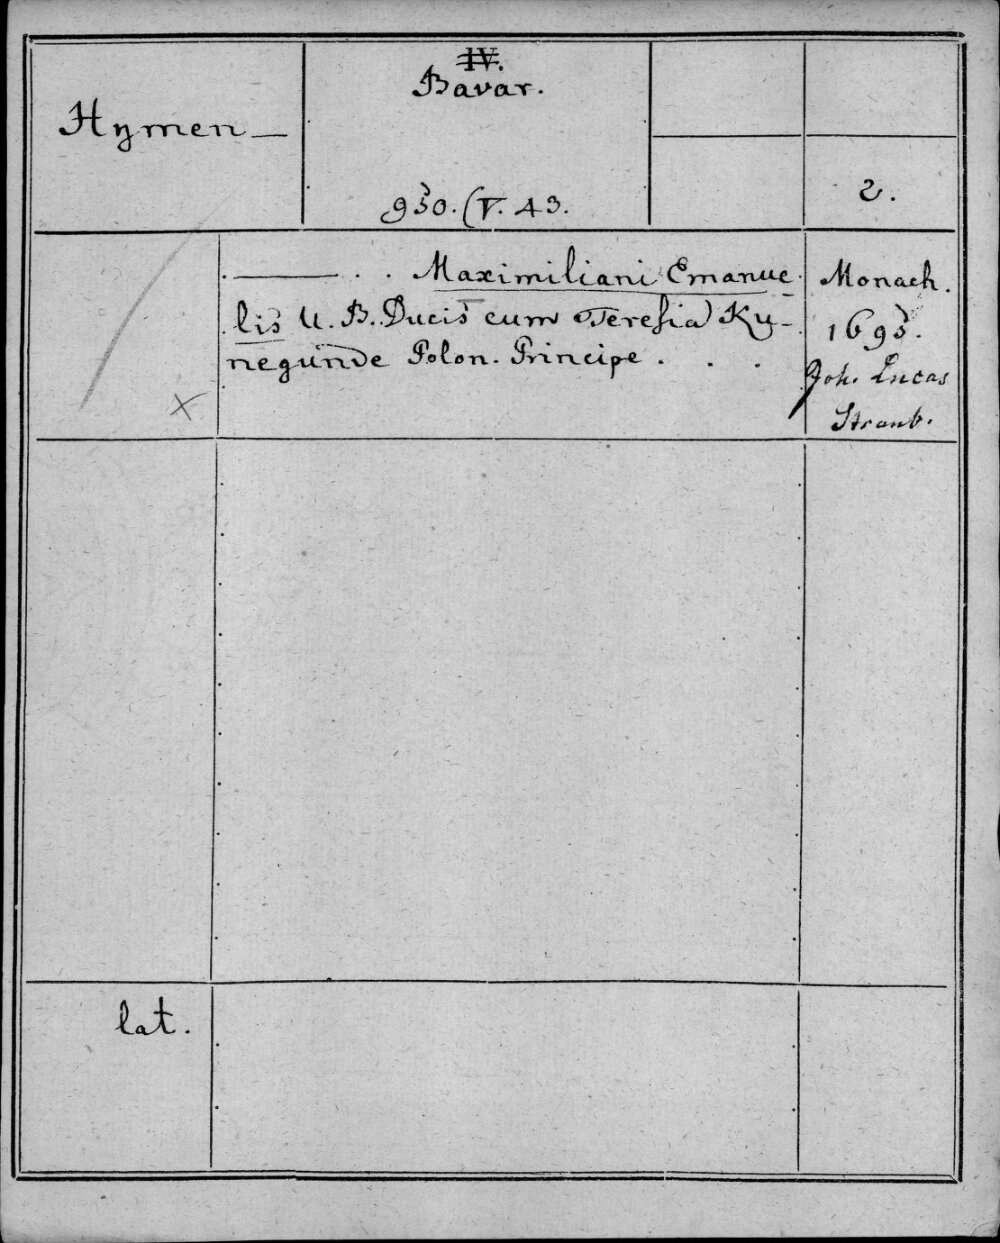 Hymen —
IV.
Bavar.
950. (V. 43.
2.
——— . . Maximiliani Emanue-
lis U. B. Ducis cum Teresia Ku-
negunde Polon. Principe . . .
Monach.
1695.
Joh. Lucas
Straub.
x
lat.